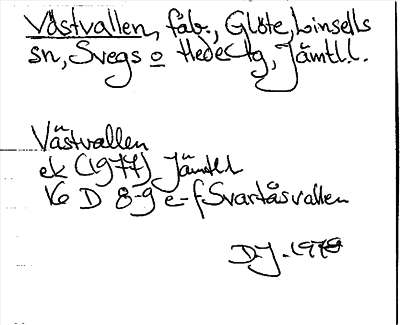 Västvallen, fäb., Glöte, Linsells
sn, Svegs o Hede tg, Jämtl.l.
Västvallen
ek (1977) Jämtl.l
16 D 8-9 e-f Svartåsvallen
DJ. 1978